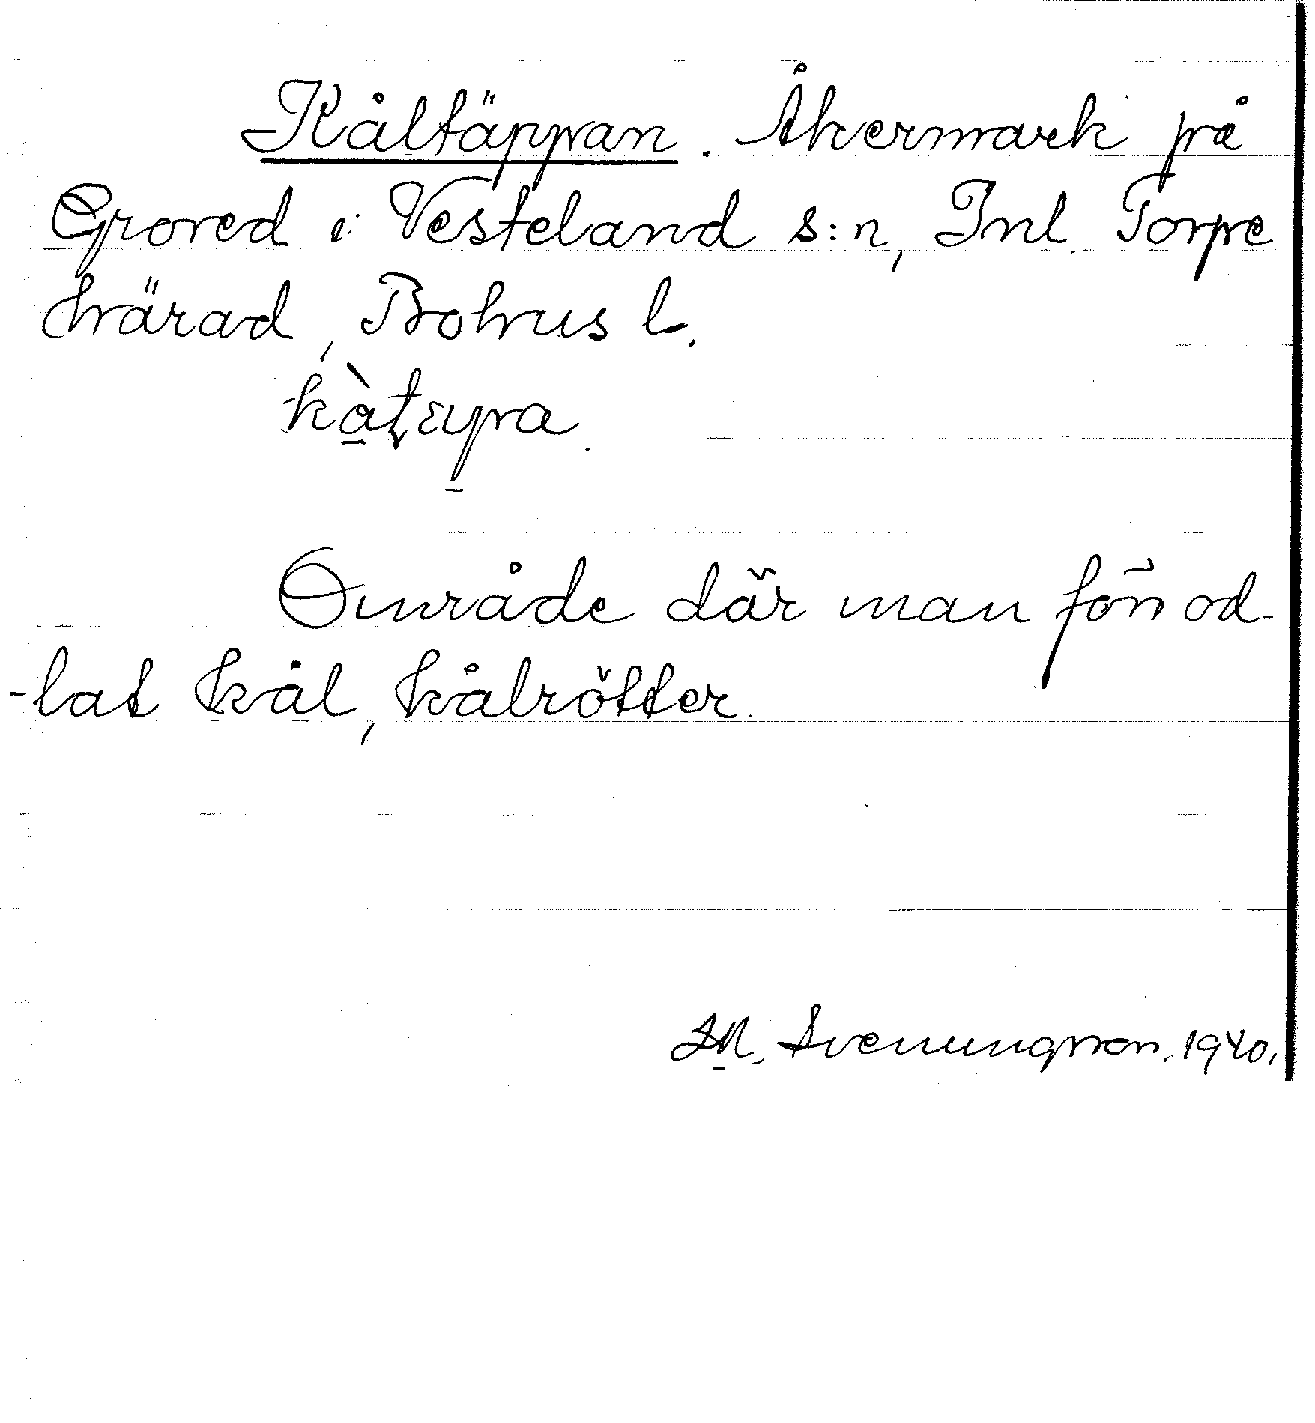 Kåltäppan. Åkermark på
Grored i Vesteland s:n, Inl. Torpe
härad, Bohus l.
Område där man förr od-
-lat kål, kålrötter.
M. Svenungsson. 1940.